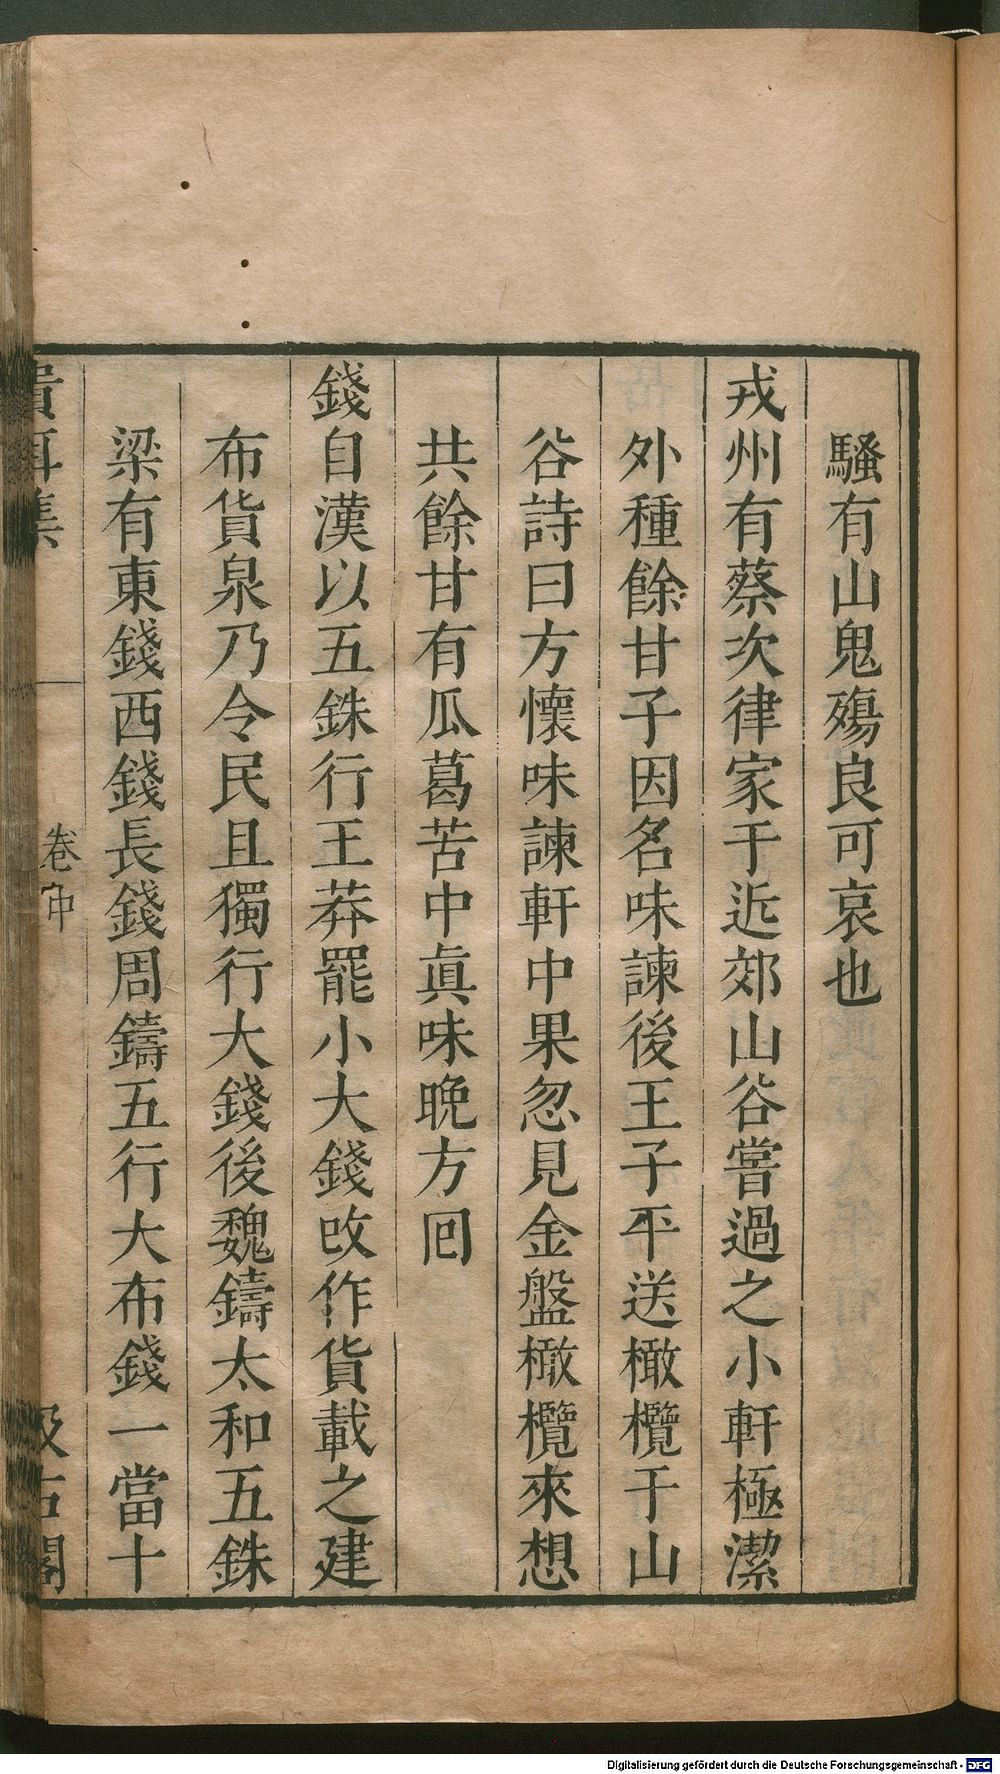 騷有山鬼殤良可哀也
戎州有蔡次律家于近郊山谷嘗過之小軒極潔
外種餘甘子因名味諫後王子平送橄欖于山
谷詩曰方懷味諫軒中果忽見金盤橄欖來想
共餘甘有瓜葛苦中眞味晚方囘
錢自漢以五銖行王莽罷小大錢改作貨載之建
布貨泉乃令民且獨行大錢後魏鑄太和五銖
梁有東錢西錢長錢周鑄五行大布錢一當十
貴耳集
卷中
汲古閣
Digitalisierung gefördert durch die Deutsche Forschungsgemeinschaft - DFG